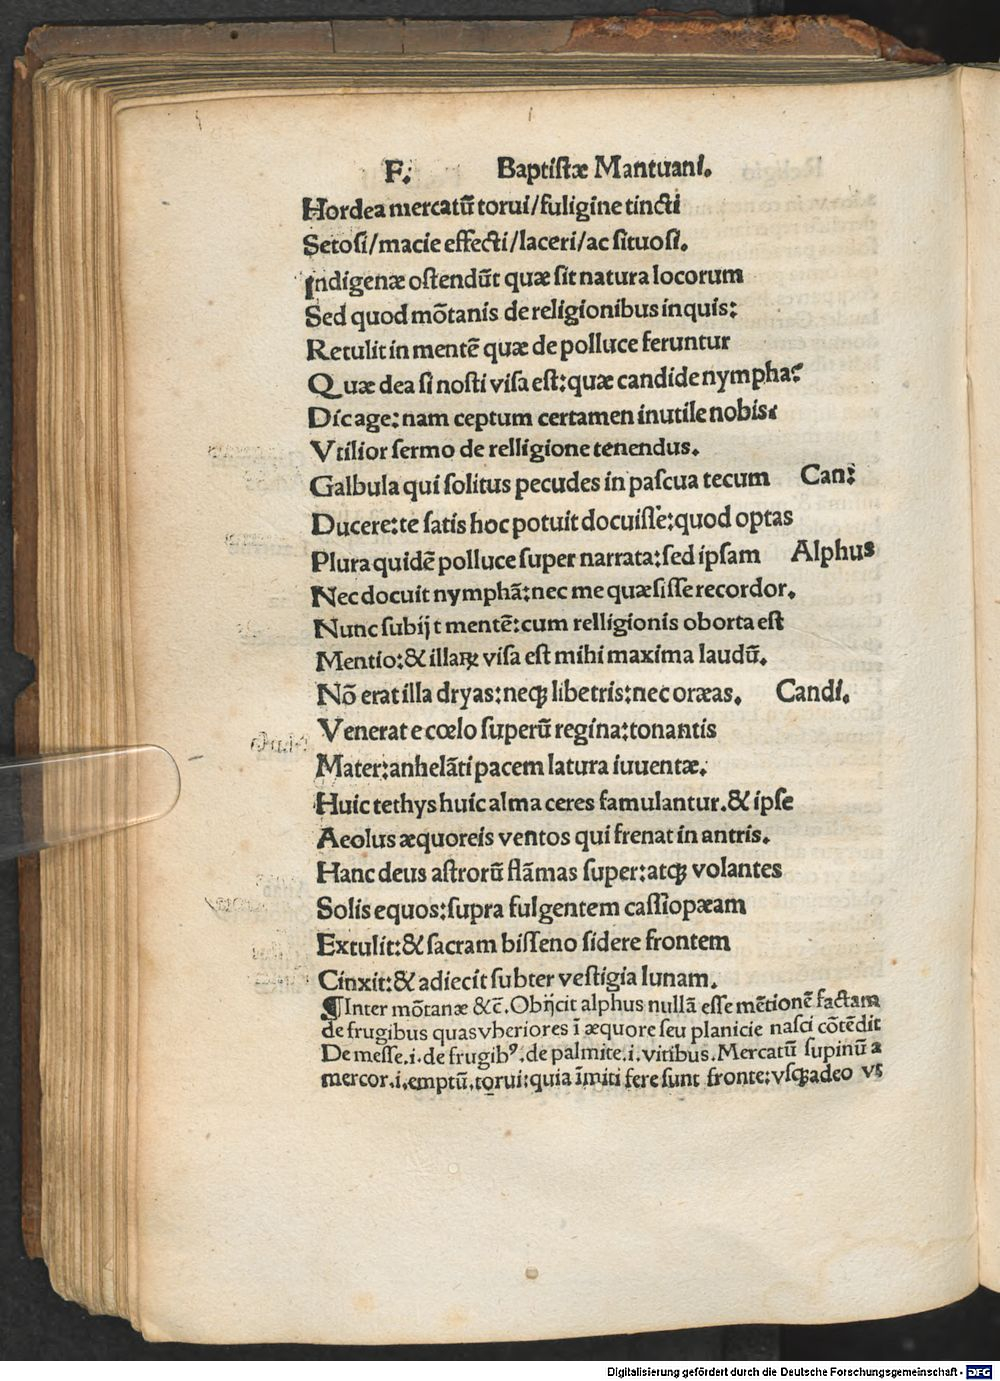 F. Baptistæ Mantuani.
Hordea mercatū torui/fuligine tincti
Setoſi/macie effecti/laceri/ac ſituoſi.
Indigenæ oſtendūt quæ ſit natura locorum
Sed quod mōtanis de religionibus inquis:
Retulit in mentē quæ de polluce feruntur
Quæ dea ſi noſti viſa eſt:quæ candide nympha?
Dic age: nam ceptum certamen inutile nobis:
Vtilior ſermo de relligione tenendus.
Galbula qui ſolitus pecudes in paſcua tecum Can:
Ducere:te ſatis hoc potuit docuiſſe:quod optas
Plura quidē polluce ſuper narrata:ſed ipſam Alphus
Nec docuit nymphā:nec me quæſiſſe recordor.
Nunc ſubijt mentē:cum relligionis oborta eſt
Mentio:& illaꝝ viſa eſt mihi maxima laudū.
Nō erat illa dryas:neqꝫ libetris:nec oræas. Candi.
Venerat e cœlo ſuperū regina:tonantis
Mater:anhelāti pacem latura iuuentæ.
Huic tethys huic alma ceres famulantur.& ipſe
Aeolus æquoreis ventos qui frenat in antris.
Hanc deus aſtrorū flāmas ſuper:atqꝫ volantes
Solis equos:ſupra fulgentem caſſiopæam
Extulit:& ſacram biſſeno ſidere frontem
Cinxit:& adiecit ſubter veſtigia lunam.
¶Inter mōtanæ &c̄. Obijcit alphus nullā eſſe mētionē factam
de frugibus quas vberiores ī æquore ſeu planicie naſci cōtēdit
De meſſe.i.de frugibꝰ.de palmite.i.vitibus.Mercatū ſupinū a
mercor.i.emptū.torui:quia īmiti fere ſunt fronte:vſqꝫadeo vs
Digitalisierung gefördert durch die Deutsche Forschungsgemeinschaft - DFG